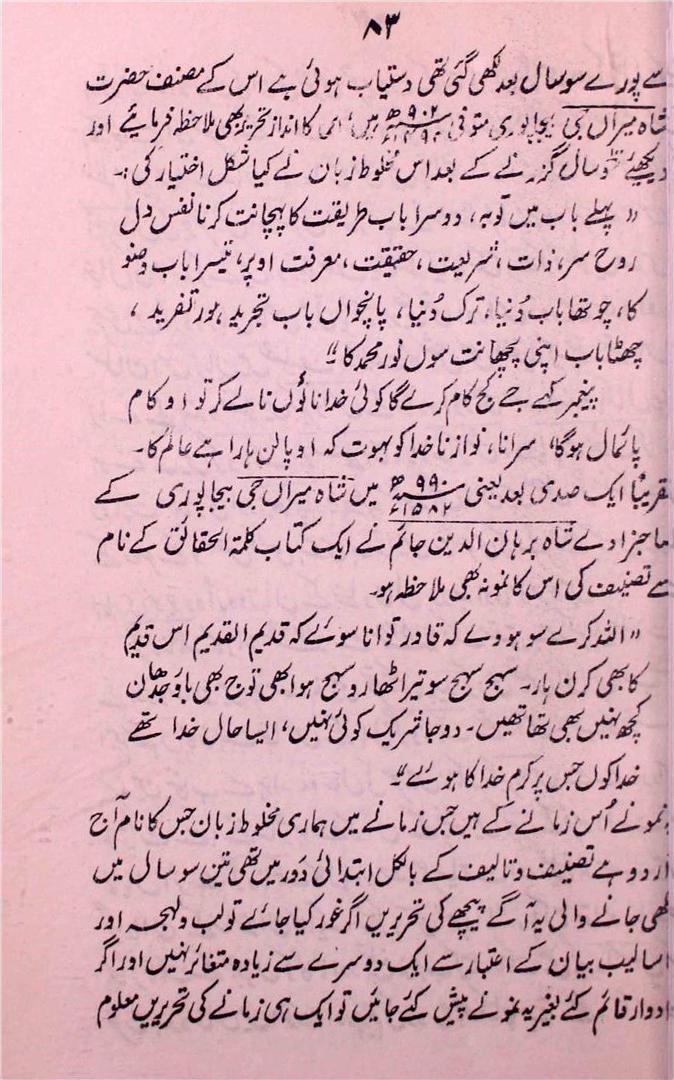 ۸۳
سے پورے سو سال بعد لکھی گئی تھی دستیاب ہوئی ہے اس کے مصنف حضرت
شاہ میراں جی بیجاپوری متوفی ۹۰۲ھ ہیں، ان کا انداز تحریر بھی ملاحظہ فرمائیے اور
دیکھیے سو سال گزرنے کے بعد اس مخلوط زبان نے کیا شکل اختیار کی :۔
" پہلے باب میں توبہ، دوسرا باب طریقت کا پہچانت کرنا نفس دل
روح سر، ذات، شریعت، حقیقت، معرفت اوپر، تیسرا باب وضو
کا، چوتھا باب دُنیا، ترک دُنیا، پانچواں باب تجرید ہور تفرید ،
چھٹا باب اپنی پچھانت سوں نور محمد کا "
پیغمبر کہے جے کچ کام کرے گا کوئی خدا نانوں نالے کر تو او کام
پائمال ہوگا" سرانا، نوازنا خدا کو بہوت کہ او پالن ہارا ہے عالم کا۔
تقریباً ایک صدی بعد یعنی ۹۹۰ھ ۱۵۸۲ء میں شاہ میراں جی بیجاپوری کے
صاحبزادے شاہ برہان الدین جانم نے ایک کتاب کلمۃ الحقائق کے نام
سے تصنیف کی اس کا نمونہ بھی ملاحظہ ہو۔
" اللہ کرے سو ہووے کہ قادر توانا سوئے کہ قدیم القدیم اس قدیم
کا بھی کرن ہار۔ سہج سہج سو تیرا ٹھار و سہج ہوا بھی توج بھی باوجداں
کچھ نہیں بھی تھا تھیں۔ دوجا شریک کوئی نہیں، ایسا حال خدا تھے
خدا کوں جس پر کرم خدا کا ہوئے "۔
نمونے اُس زمانے کے ہیں جس زمانے میں ہماری مخلوط زبان جس کا نام آج
اردو ہے تصنیف و تالیف کے بالکل ابتدائی دور میں تھی تین سو سال میں
لکھی جانے والی یہ آگے پیچھے کی تحریریں اگر غور کیا جائے تو لب و لہجہ اور
اسالیب بیان کے اعتبار سے ایک دوسرے سے زیادہ متغائر نہیں اور اگر
ادوار قائم کئے بغیر یہ نمونے پیش کئے جائیں تو ایک ہی زمانے کی تحریریں معلوم